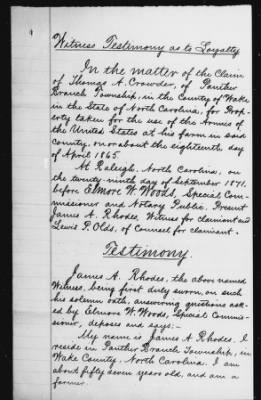 Witness Testimony as to Loyalty
In the matter of the Claim
of Thomas A. Crowder, of Panther
Branch Township, in the County of Wake
in the State of North Carolina, for Prop-
erty taken for the use of the Armies of
the United States at his farm in said
county, on or about the eighteenth day
of April 1865.
At Raleigh, North Carolina, on
the twenty-ninth day of September 1871.
before Elmore W. Woods, Special Com-
missioner and Notary Public. Present
James A. Rhodes, Witness for claimant and
Lewis P. Olds, of Counsel for claimant.
Testimony.
James A. Rhodes, the above named
Witness, being first duly sworn, on such
his solemn oath, answering questions ask-
ed by Elmore W. Woods, Special Commis-
sioner, deposes and says:-
My name is James A Rhodes. I
reside in Panther Branch Township, in
Wake County, North Carolina. I am
about fifty seven years old, and am a
farmer.